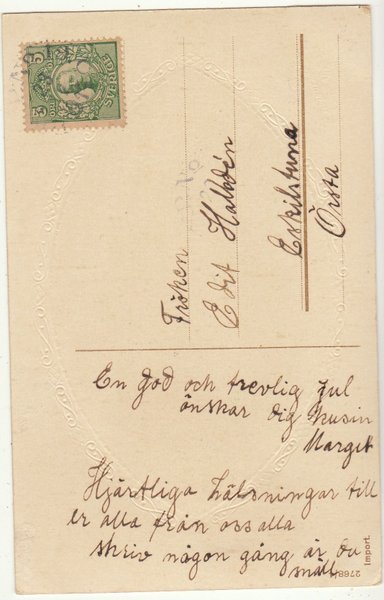 Fröken
Edit Halldén
Eskilstuna
Örsta
En god och trevlig jul
önskar dig kusin
Margit
Hjärtliga hälsningar till
er alla från oss alla
skriv någon gång är du
snäll
Import.
SVERIGE
5